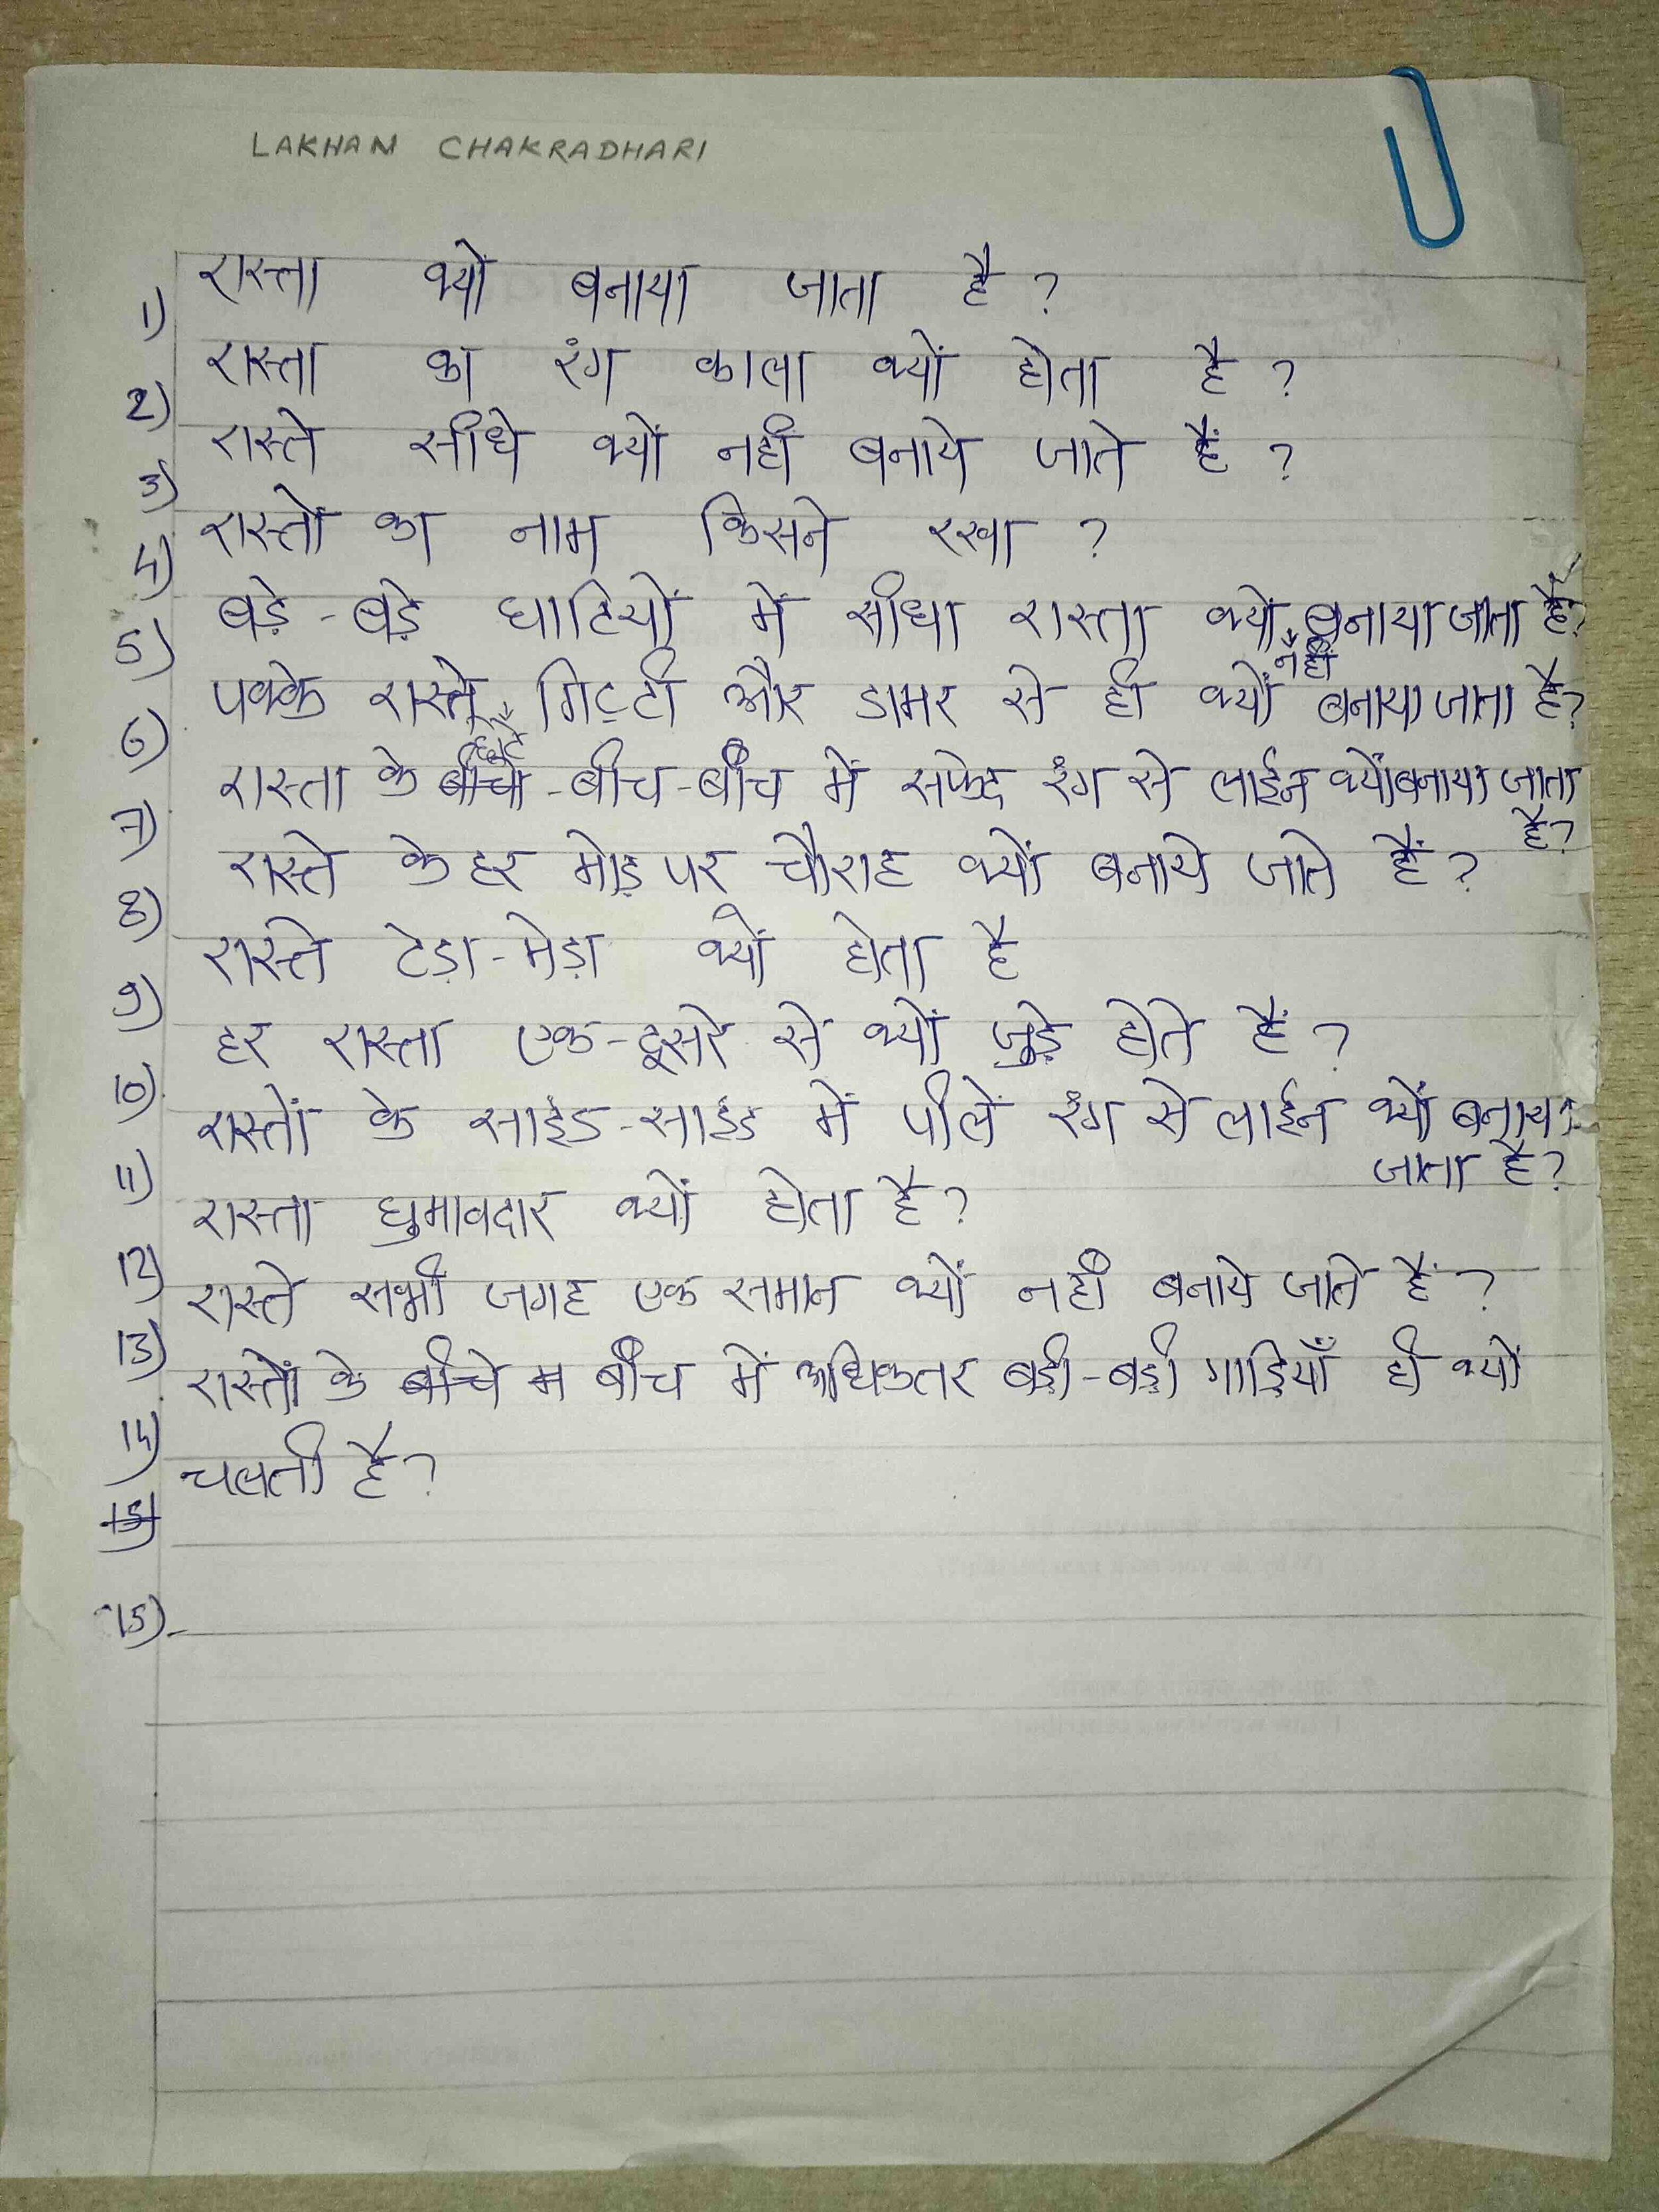 LAKHAN CHAKRADHARI
1) रास्ता क्यों बनाया जाता है ?
2) रास्ता का रंग काला क्यों होता है ?
3) रास्ते सीधे क्यों नहीं बनाये जाते हैं ?
4) रास्तों का नाम किसने रखा ?
5) बड़े - बड़े घाटियों में सीधा रास्ता क्यों बनाया जाता है?
नहीं
6) पक्के रास्ते गिट्टी और डामर से ही क्यों बनाया जाता है?
छोटे
7) रास्ता के बीचो - बीच - बीच में सफेद रंग से लाईन क्यों बनाया जाता
है?
8) रास्ते के हर मोड़ पर चौराह क्यों बनाये जाते हैं ?
9) रास्ते टेड़ा - मेड़ा क्यों होता है
10) हर रास्ता एक - दूसरे से क्यों जुड़े होते हैं ?
11) रास्तों के साईड - साईड में पीले रंग से लाईन क्यों बनाया
जाता है?
12) रास्ता घुमावदार क्यों होता है?
13) रास्ते सभी जगह एक समान क्यों नहीं बनाये जाते हैं ?
14) रास्तों के बीचे म बीच में अधिकतर बड़ी - बड़ी गाड़ियाँ ही क्यों
चलती है?
15)
15)